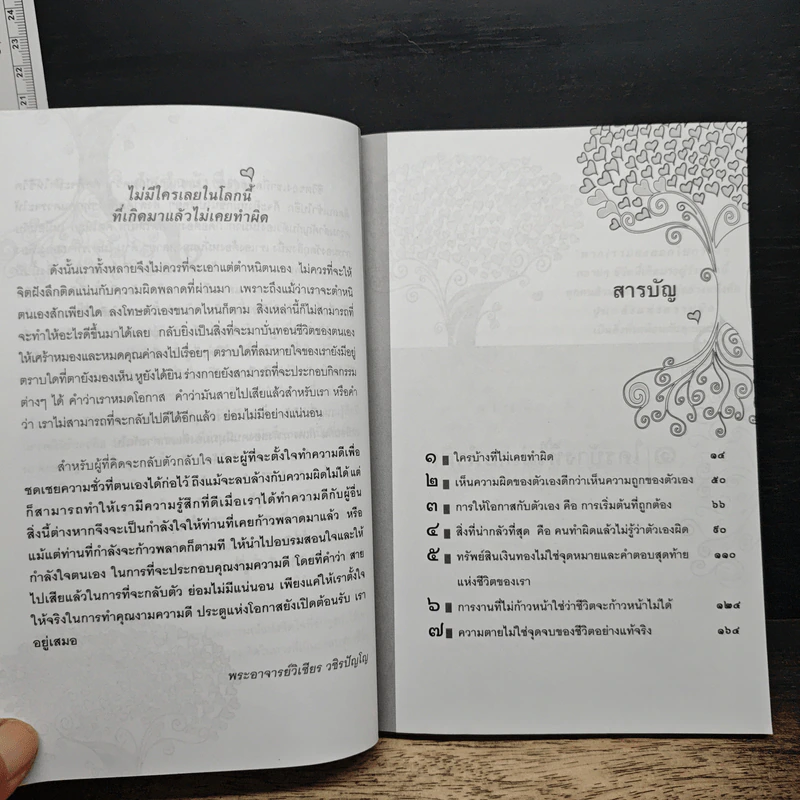 24
23
22
21
ไม่มีใครเลยในโลกนี้
ที่เกิดมาแล้วไม่เคยทำผิด
ดังนั้นเราทั้งหลายจึงไม่ควรที่จะเอาแต่ตำหนิตนเอง ไม่ควรที่จะให้
จิตฝังลึกติดแน่นกับความผิดพลาดที่ผ่านมา เพราะถึงแม้ว่าเราจะตำหนิ
ตนเองสักเพียงใด ลงโทษตัวเองขนาดไหนก็ตาม สิ่งเหล่านี้ก็ไม่สามารถที่
จะทำให้อะไรดีขึ้นมาได้เลย กลับยิ่งเป็นสิ่งที่จะมาบั่นทอนชีวิตของตนเอง
ให้เศร้าหมองและหมดคุณค่าลงไปเรื่อยๆ ตราบใดที่ลมหายใจของเรายังมีอยู่
ตราบใดที่ตายังมองเห็น หูยังได้ยิน ร่างกายยังสามารถที่จะประกอบกิจกรรม
ต่างๆ ได้ คำว่าเราหมดโอกาส คำว่ามันสายไปเสียแล้วสำหรับเรา หรือคำ
ว่า เราไม่สามารถที่จะกลับไปดีได้อีกแล้ว ย่อมไม่มีอย่างแน่นอน
สำหรับผู้ที่คิดจะกลับตัวกลับใจ และผู้ที่จะตั้งใจทำความดีเพื่อ
ชดเชยความชั่วที่ตนเองได้ก่อไว้ ถึงแม้จะลบล้างกับความผิดไม่ได้ แต่
ก็สามารถทำให้เรามีความรู้สึกที่ดีเมื่อเราได้ทำความดีกับผู้อื่น
สิ่งนี้ต่างหากจึงจะเป็นกำลังใจให้ท่านที่เคยก้าวพลาดมาแล้ว หรือ
แม้แต่ท่านที่กำลังจะก้าวพลาดก็ตามที ให้นำไปอบรมสอนใจและให้
กำลังใจตนเอง ในการที่จะประกอบคุณงามความดี โดยที่คำว่า สาย
ไปเสียแล้วในการที่จะกลับตัว ย่อมไม่มีแน่นอน เพียงแค่ให้เราตั้งใจ
ให้จริงในการทำคุณงามความดี ประตูแห่งโอกาสยังเปิดต้อนรับ เรา
อยู่เสมอ
พระอาจารย์วิเชียร วชิรปัญโญ
สารบัญ
๑ ใครบ้างที่ไม่เคยทำผิด ๑๔
๒ เห็นความผิดของตัวเองดีกว่าเห็นความถูกของตัวเอง ๕๐
๓ การให้โอกาสกับตัวเอง คือ การเริ่มต้นที่ถูกต้อง ๖๖
๔ สิ่งที่น่ากลัวที่สุด คือ คนทำผิดแล้วไม่รู้ว่าตัวเองผิด ๙๐
๕ ทรัพย์สินเงินทองไม่ใช่จุดหมายและคำตอบสุดท้าย ๑๑๐
แห่งชีวิตของเรา
๖ การงานที่ไม่ก้าวหน้าใช่ว่าชีวิตจะก้าวหน้าไม่ได้ ๑๒๔
๗ ความตายไม่ใช่จุดจบของชีวิตอย่างแท้จริง ๑๖๔